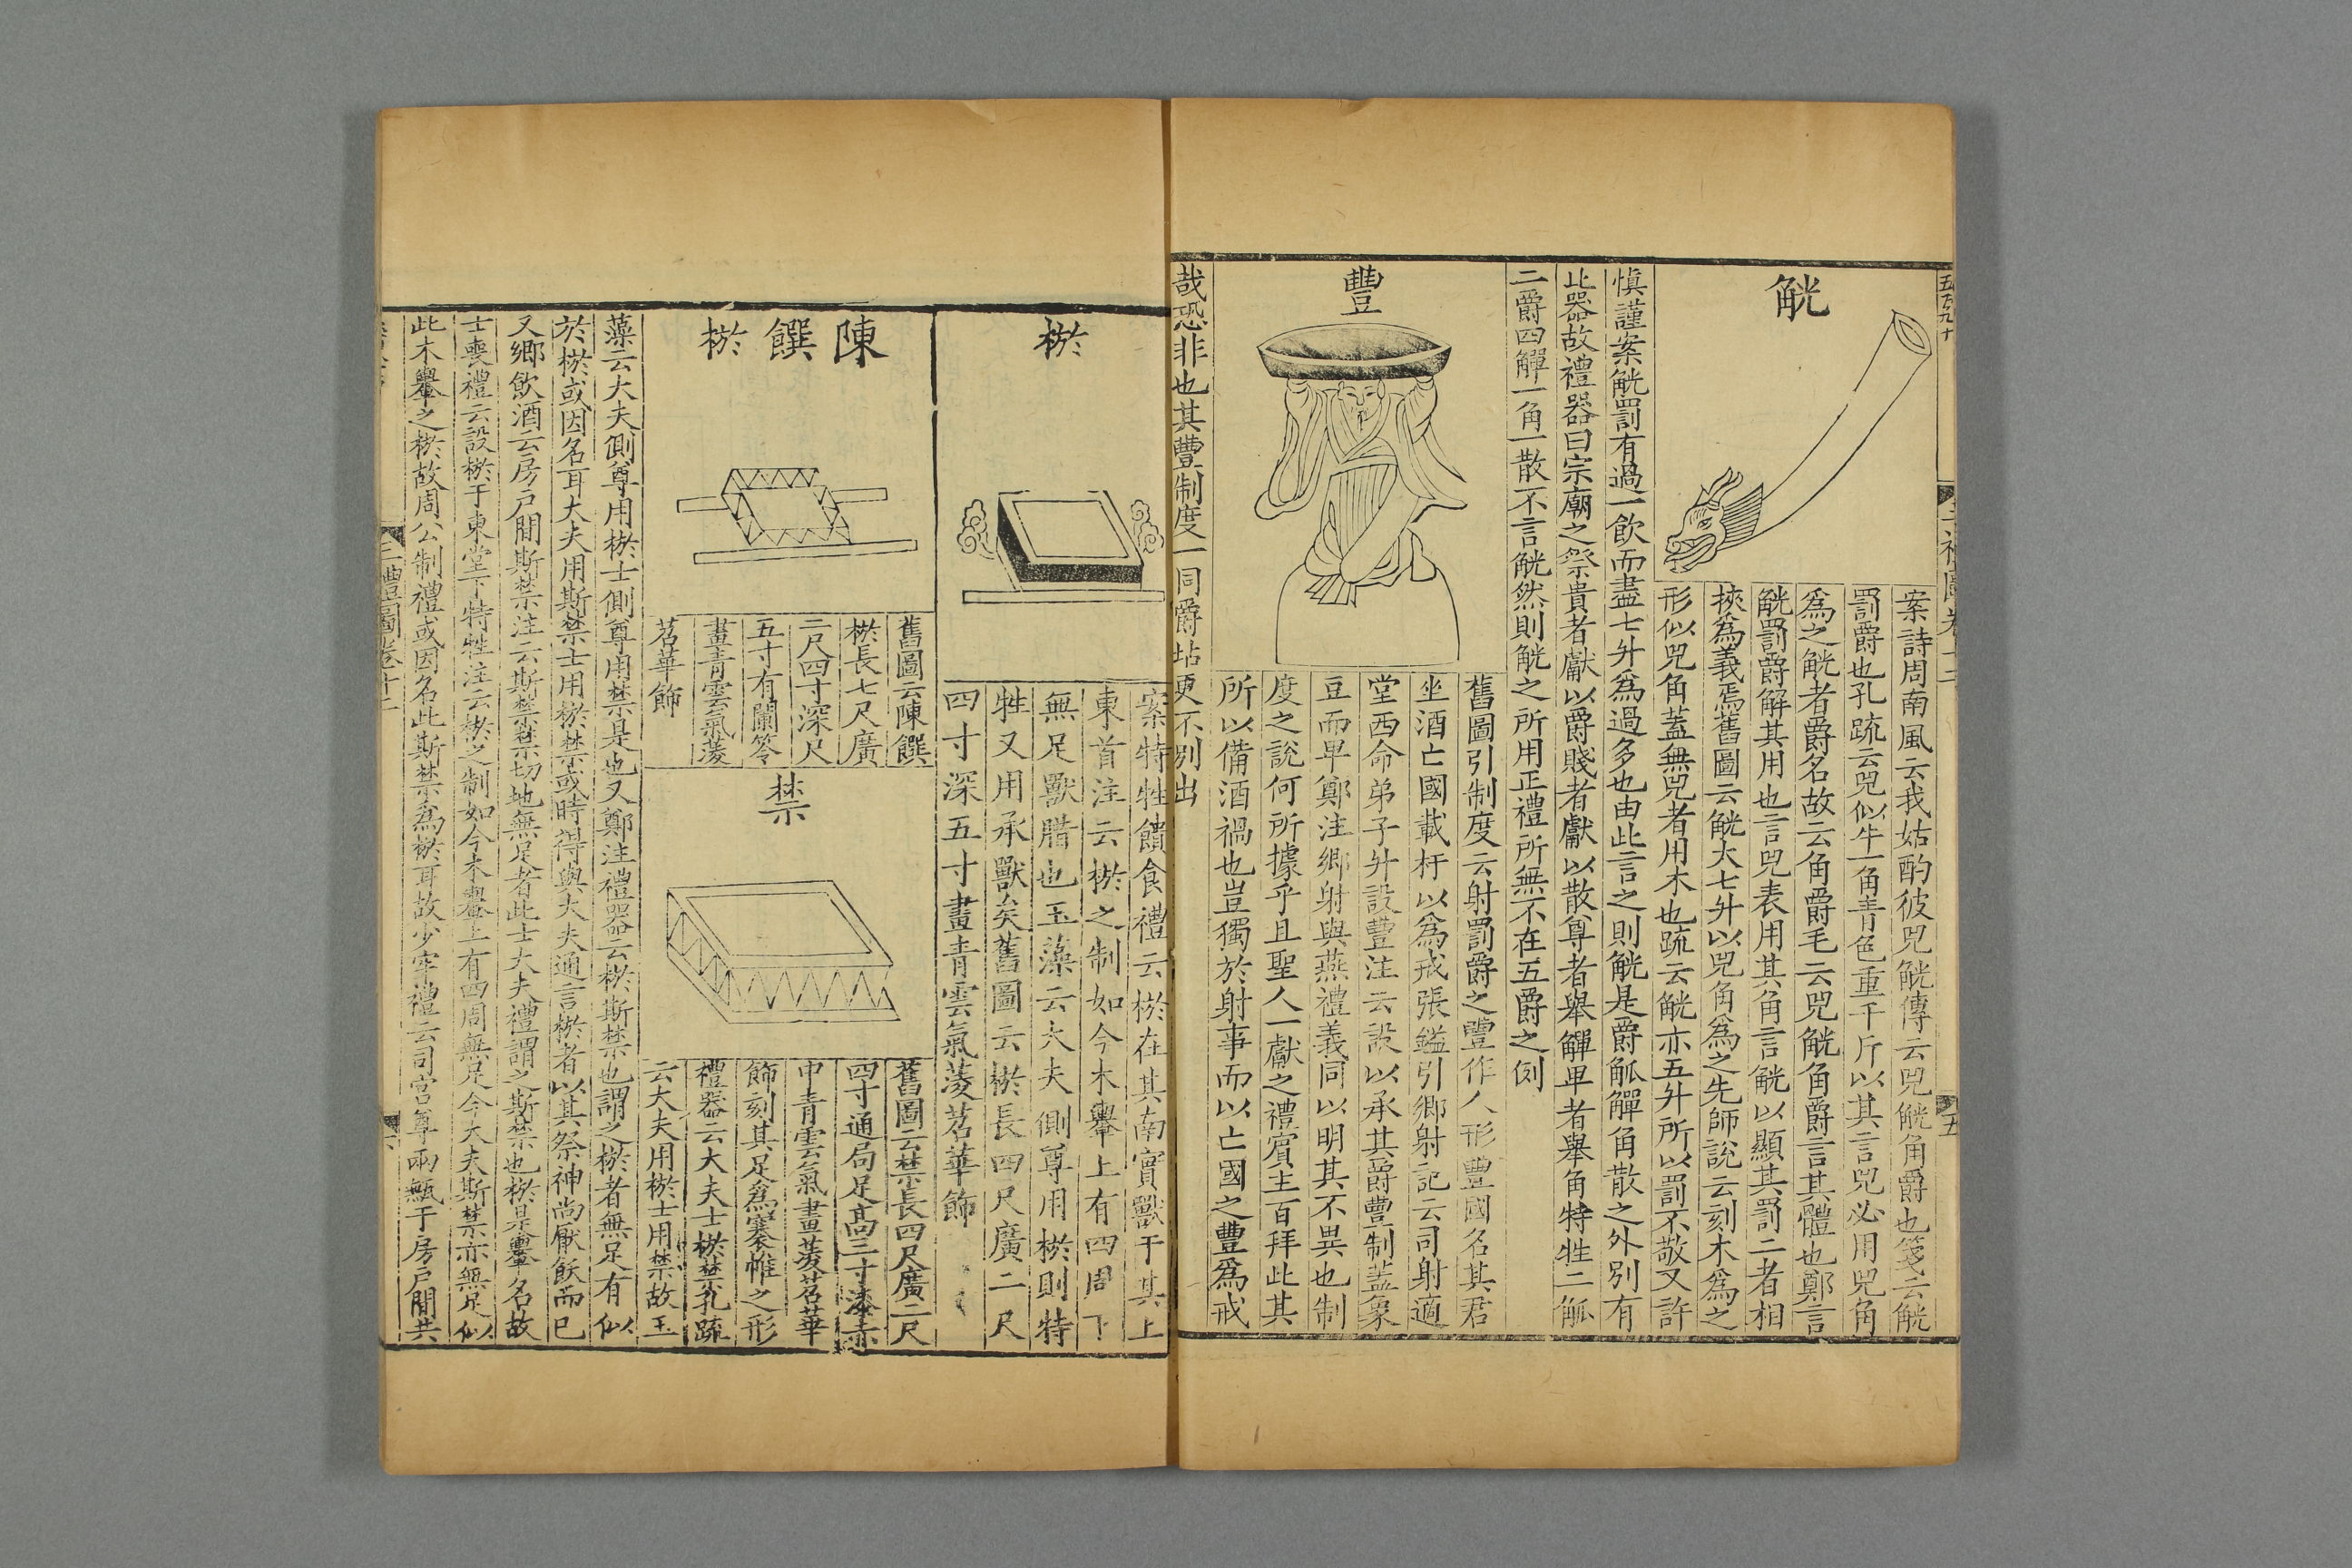 觥
案詩周南風云我姑酌彼兕觥傳云兕觥角爵也箋云觥
罰爵也孔疏云兕似牛一角青色重千斤以其言兕必用兕角
爲之觥者爵名故云角爵毛云兕觥角爵言其體也鄭言
觥罰爵解其用也言兕表用其角言觥以顯其罰二者相
挾爲義焉舊圖云觥大七升以兕角爲之先師說云刻木爲之
形似兕角蓋無兕者用木也疏云觥亦五升所以罰不敬又許
慎謹案觥罰有過一飲而盡七升爲過多也由此言之則觥是爵觚觶角散之外別有
此器故禮器曰宗廟之祭貴者獻以爵賤者獻以散尊者舉觶卑者舉角特牲二觚
二爵四觶一角一散不言觥然則觥之所用正禮所無不在五爵之例
豐
舊圖引制度云射罰爵之豐作人形豐國名其君
坐酒亡國載杅以爲戒張鎰引鄉射記云司射適
堂西命弟子升設豐注云設以承其爵豐制蓋象
豆而卑鄭注鄉射與燕禮義同以明其不異也制
度之說何所據乎且聖人一獻之禮賓主百拜此其
所以備酒禍也豈獨於射事而以亡國之豐爲戒
哉恐非也其豐制度一同爵坫更不別出
棜
案特牲饋食禮云棜在其南實獸于其上
東首注云棜之制如今木轝上有四周下
無足獸腊也玉藻云大夫側尊用棜則特
牲又用承獸矣舊圖云棜長四尺廣二尺
四寸深五寸畫青雲氣菱苕華飾
陳饌棜
舊圖云陳饌
棜長七尺廣
二尺四寸深尺
五寸有闌笭
畫青雲氣菱
苕華飾
禁
舊圖云禁長四尺廣二尺
四寸通局足高三寸漆赤
中青雲氣畫菱苕華
飾刻其足爲褰帷之形
禮器云大夫士棜禁孔疏
云大夫用棜士用禁故玉
藻云大夫側尊用棜士側尊用禁是也又鄭注禮器云棜斯禁也謂之棜者無足有似
於棜或因名耳大夫用斯禁士用棜禁或時得與大夫通言棜者以其祭神尚厭飫而已
又鄉飲酒云房戶間斯禁注云斯禁禁切地無足者此士大夫禮謂之斯禁也棜是轝名故
士喪禮云設棜于東堂下特牲注云棜之制如今木轝上有四周無足今大夫斯禁亦無足似
此木轝之棜故周公制禮或因名此斯禁爲棜耳故少牢禮云司宮尊兩甒于房戶間共
三禮圖卷十二